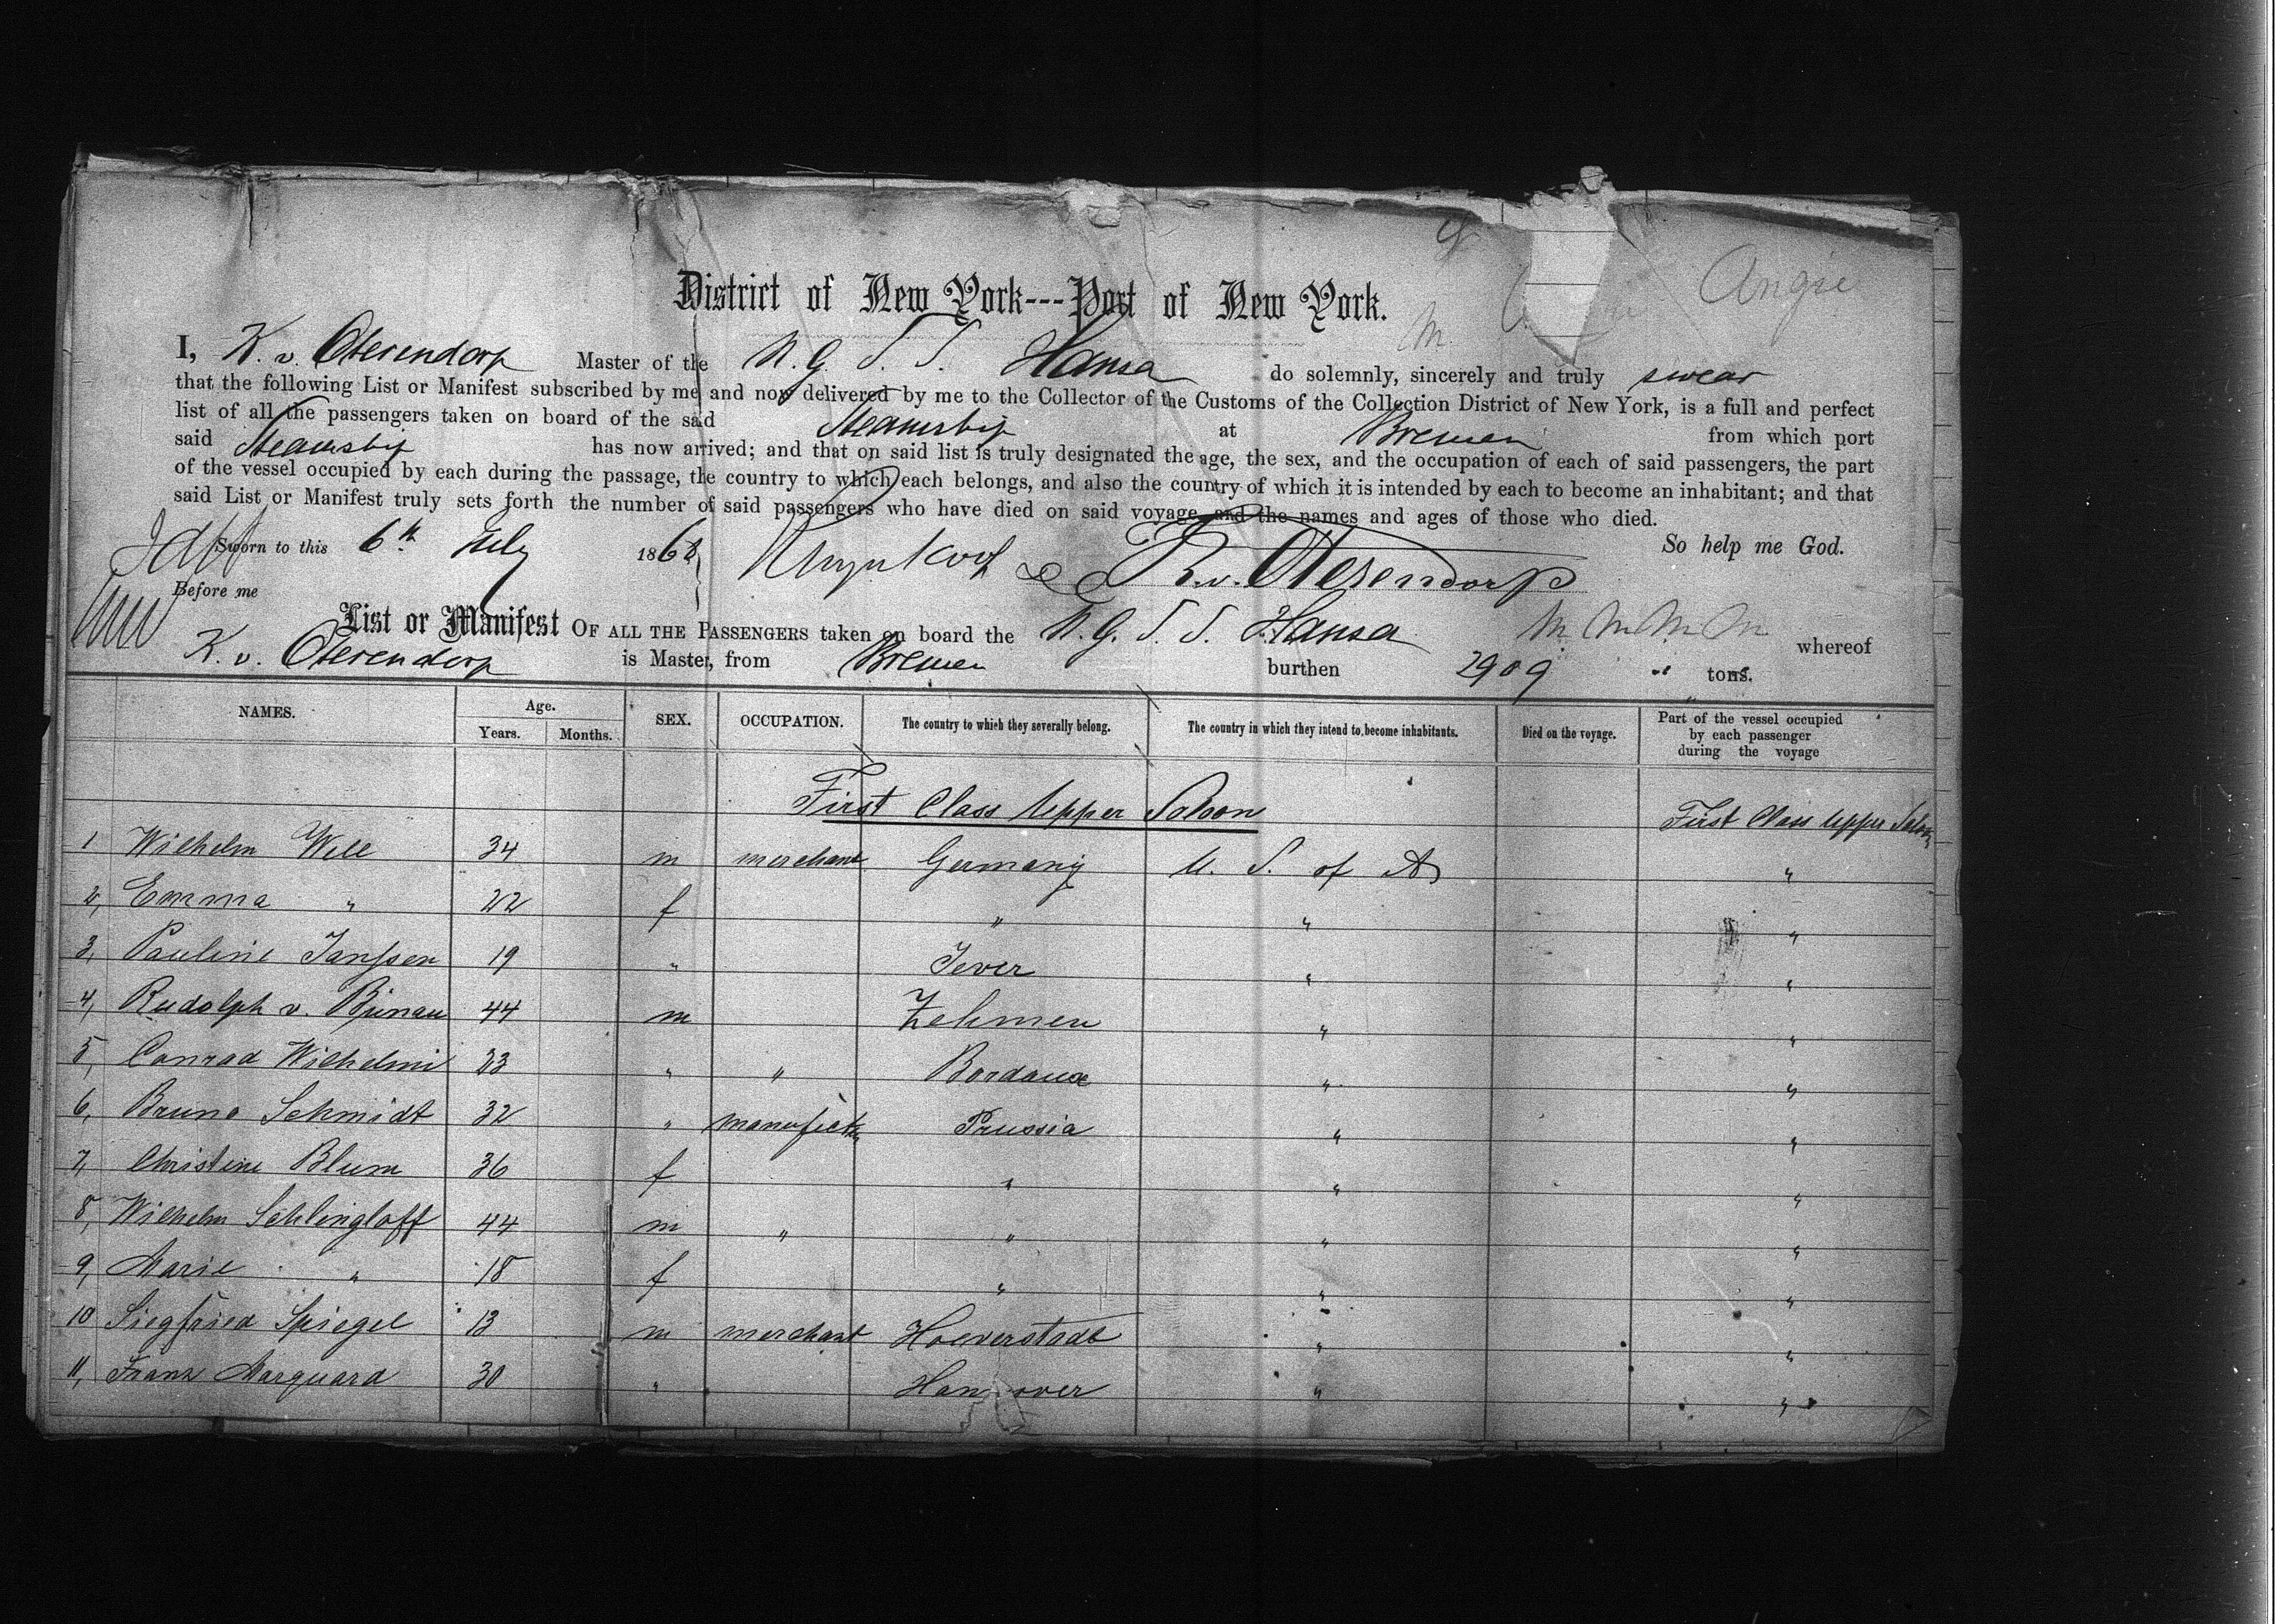 Angie
District of New York---Port of New York.
I, K. v. Oterendorp Master of the N. G. S. S. Hansa do solemnly, sincerely and truly swear
that the following List or Manifest subscribed by me and now delivered by me to the Collector of the Customs of the Collection District of New York, is a full and perfect
list of all the passengers taken on board of the said Steamship at Bremen from which port
said Steamship has now arrived; and that on said list is truly designated the age, the sex, and the occupation of each of said passengers, the part
of the vessel occupied by each during the passage, the country to which each belongs, and also the country of which it is intended by each to become an inhabitant; and that
said List or Manifest truly sets forth the number of said passengers who have died on said voyage, and the names and ages of those who died.
So help me God.
Sworn to this 6th July 1868 K. v. Oterendorp
Before me
List or Manifest OF ALL THE PASSENGERS taken on board the N. G. S. S. Hansa whereof
K. v. Oterendorp is Master, from Bremen burthen 2909 tons.
NAMES. Age. Years. Months. SEX. OCCUPATION. The country to which they severally belong. The country in which they intend to become inhabitants. Died on the voyage. Part of the vessel occupied by each passenger during the voyage
First Class Upper Saloon First Class Upper Saloon
1 Wilhelm Well 34 m merchant Germany U. S. of A "
2, Emma " 22 f " " "
3, Pauline Janssen 19 " Jever " "
4, Rudolph v. Bünau 44 m Zehmen " "
5, Conrad Wilhelmi 23 " " Bordaux " "
6, Bruno Schmidt 32 " Prussia " "
7, Christine Blum 36 f " " "
8, Wilhelm Schlingloff 44 m " " " "
9, Marie " 18 f " " "
10 Siegfried Spiegel 13 m merchant Hoeverstadt " "
11, Franz Marquard 30 " Hannover " "